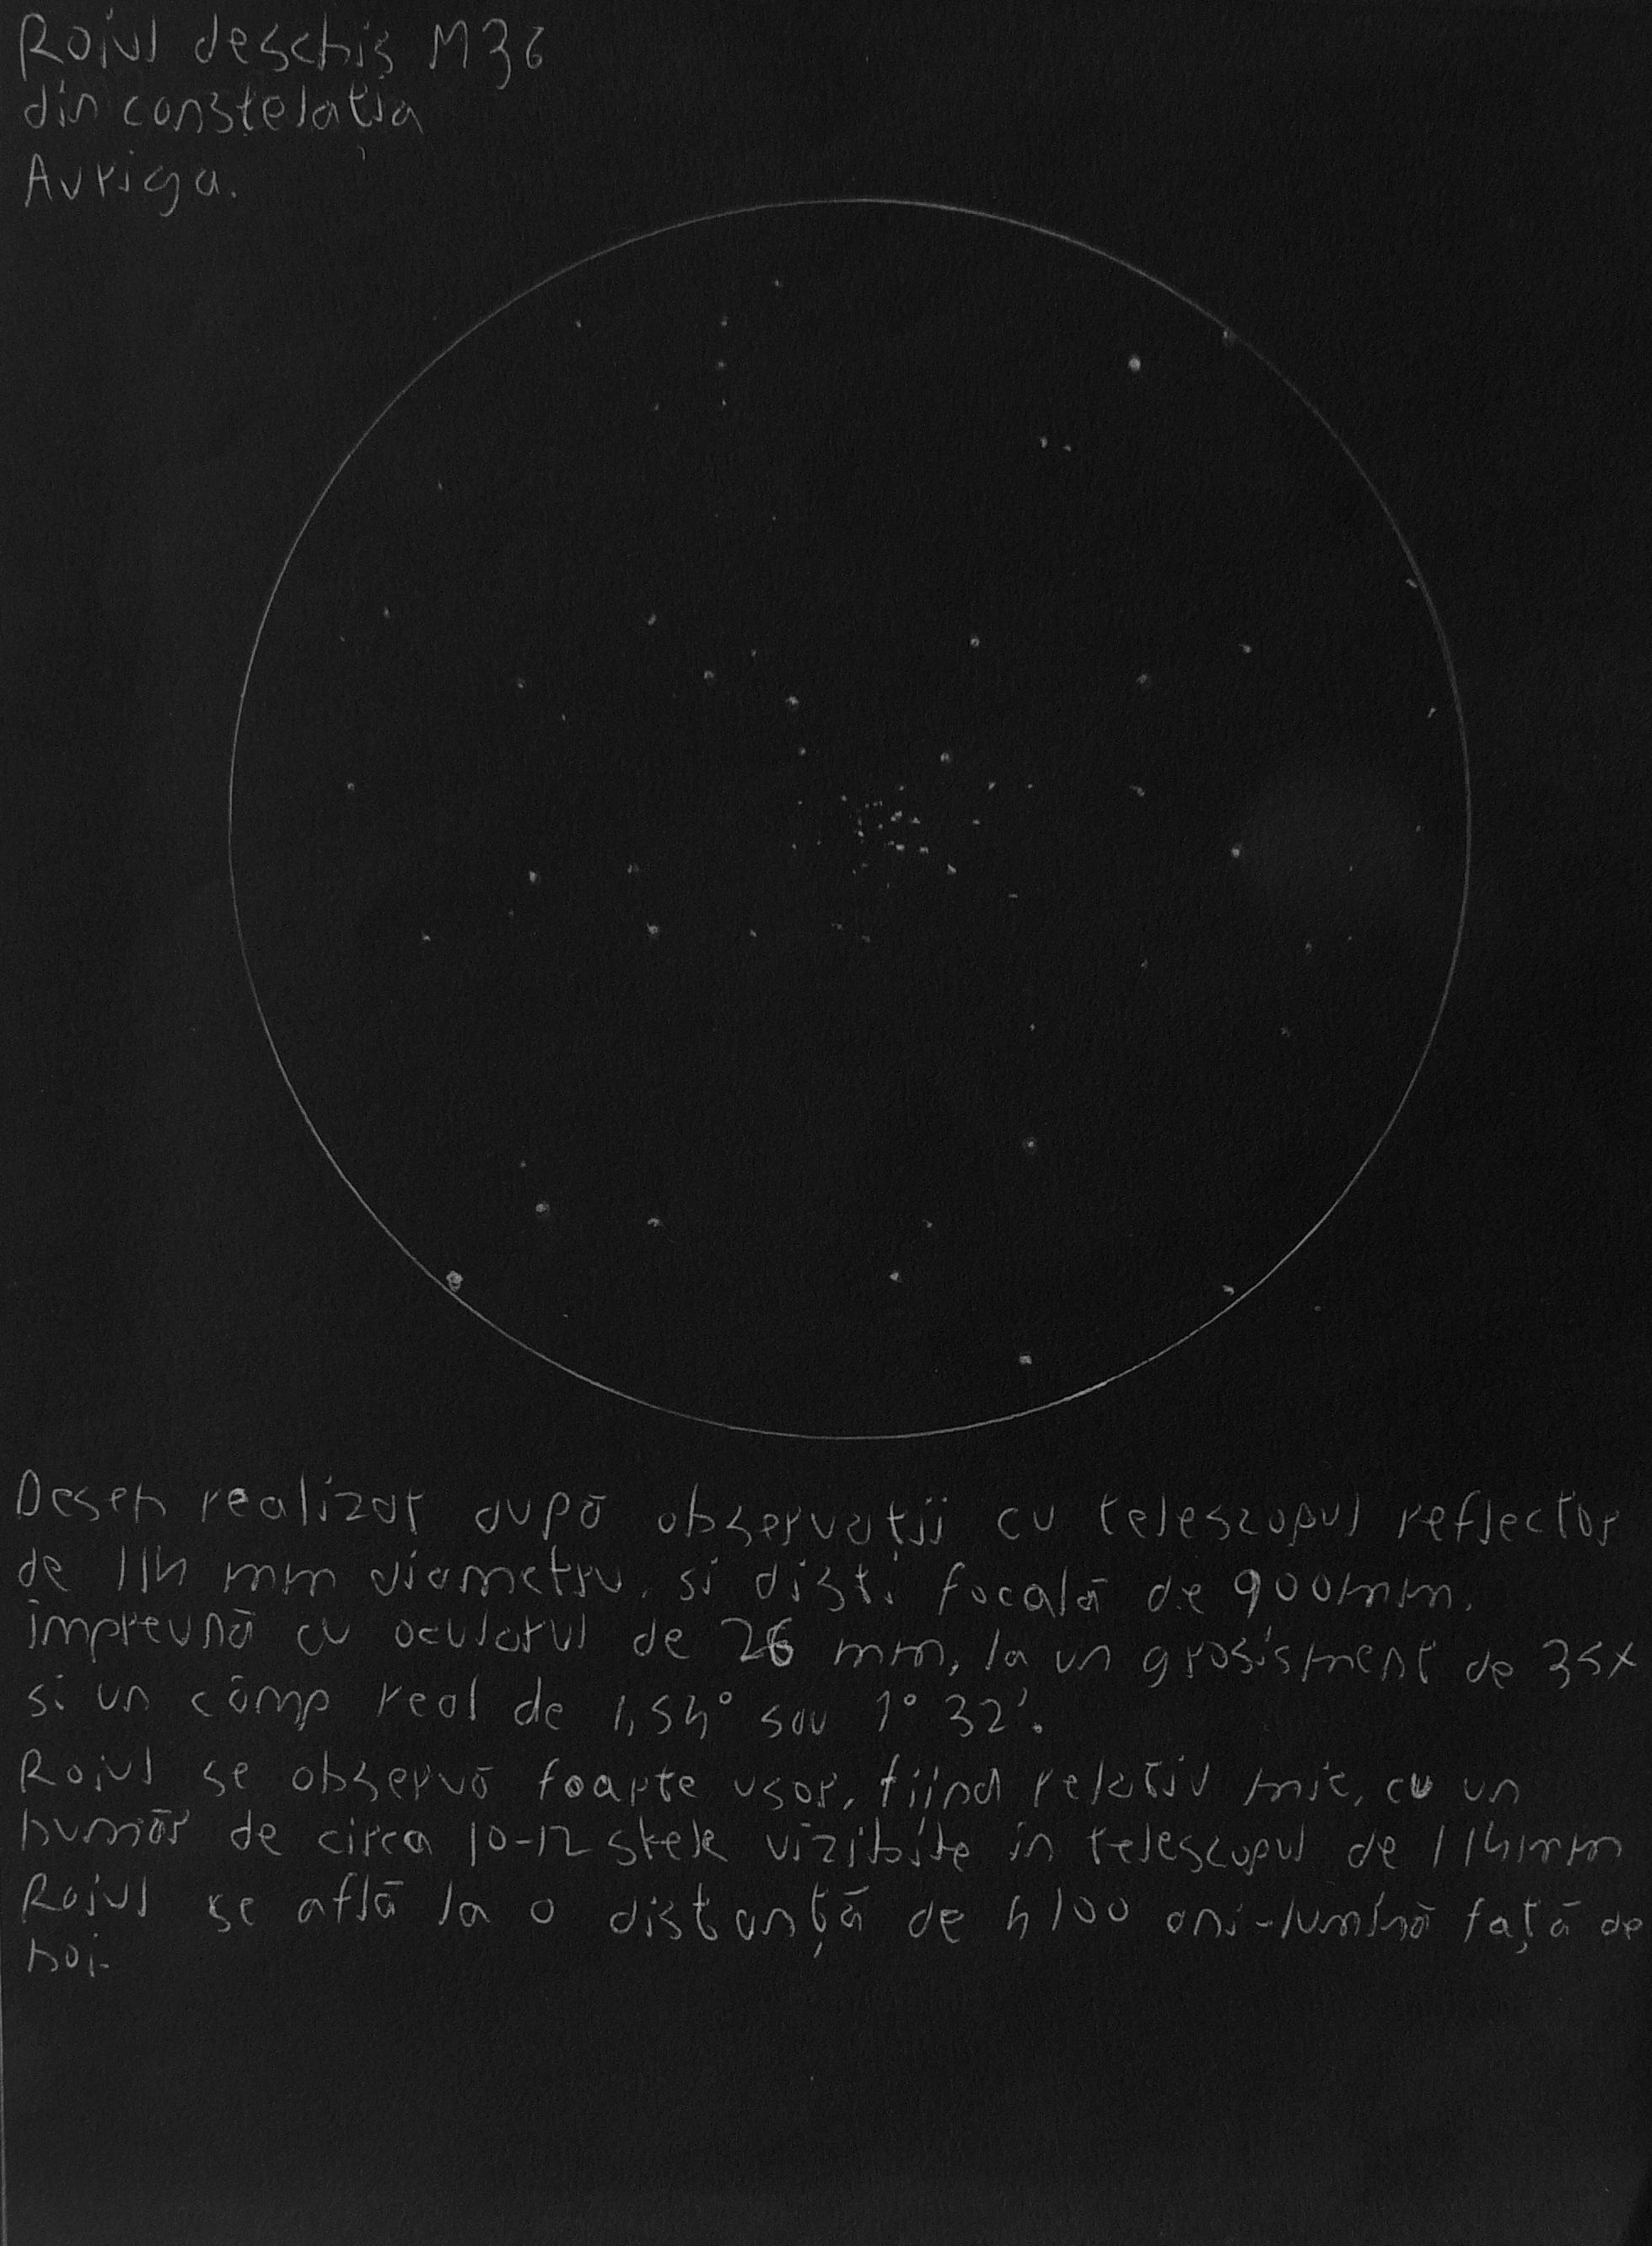 Roiul deschis M36
din constelația
Auriga.
Desen realizat după observații cu telescopul reflector
de 114 mm diametru, si dist. focală de 900mm.
împreună cu ocularul de 26 mm, la un grosisment de 35x
si un câmp real de 1,54° sau 1° 32'.
Roiul se observă foarte usor, fiind relativ mic, cu un
număr de circa 10-12 stele vizibile in telescopul de 114mm
Roiul se află la o distanță de 4100 ani-lumină față de
noi.